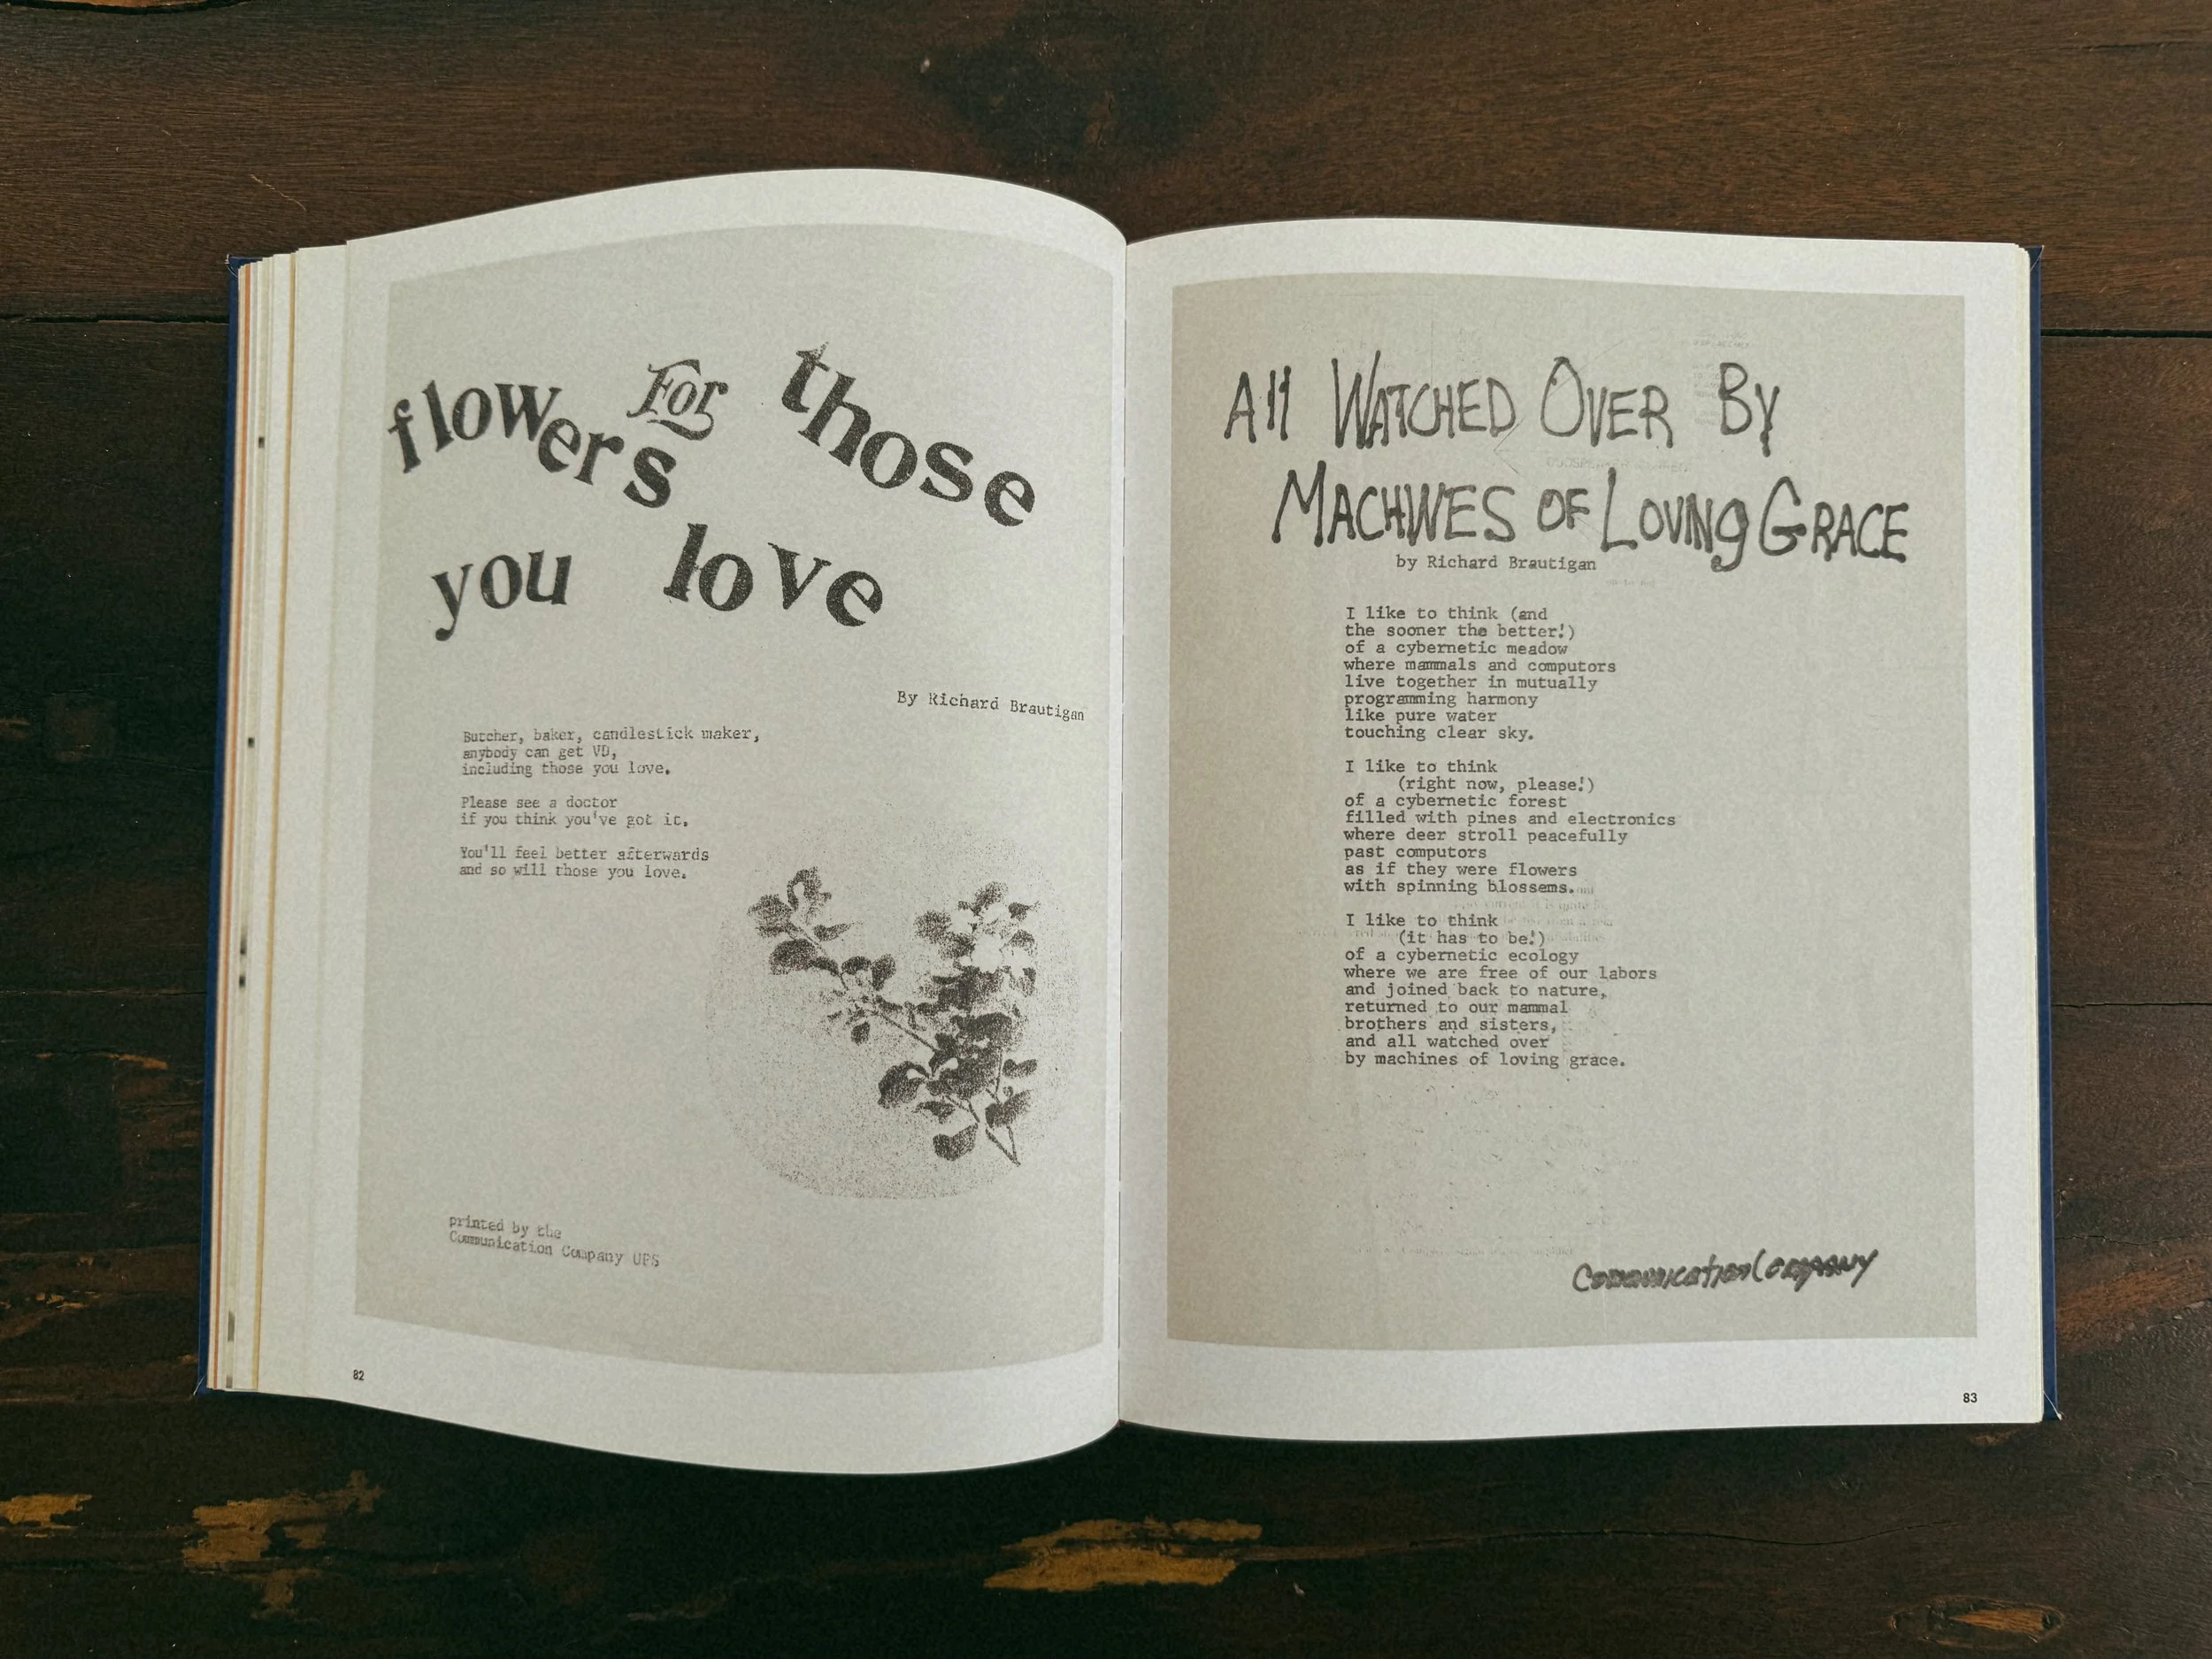 flowers For those
you love
By Richard Brautigan
Butcher, baker, candlestick maker,
anybody can get VD,
including those you love.
Please see a doctor
if you think you've got it.
You'll feel better afterwards
and so will those you love.
printed by the
Communication Company UPS
82
All WATCHED OVER BY
MACHINES OF LOVINg GRACE
by Richard Brautigan
I like to think (and
the sooner the better!)
of a cybernetic meadow
where mammals and computors
live together in mutually
programming harmony
like pure water
touching clear sky.
I like to think
(right now, please!)
of a cybernetic forest
filled with pines and electronics
where deer stroll peacefully
past computors
as if they were flowers
with spinning blossems.
I like to think
(it has to be!)
of a cybernetic ecology
where we are free of our labors
and joined back to nature,
returned to our mammal
brothers and sisters,
and all watched over
by machines of loving grace.
Communication Company
83